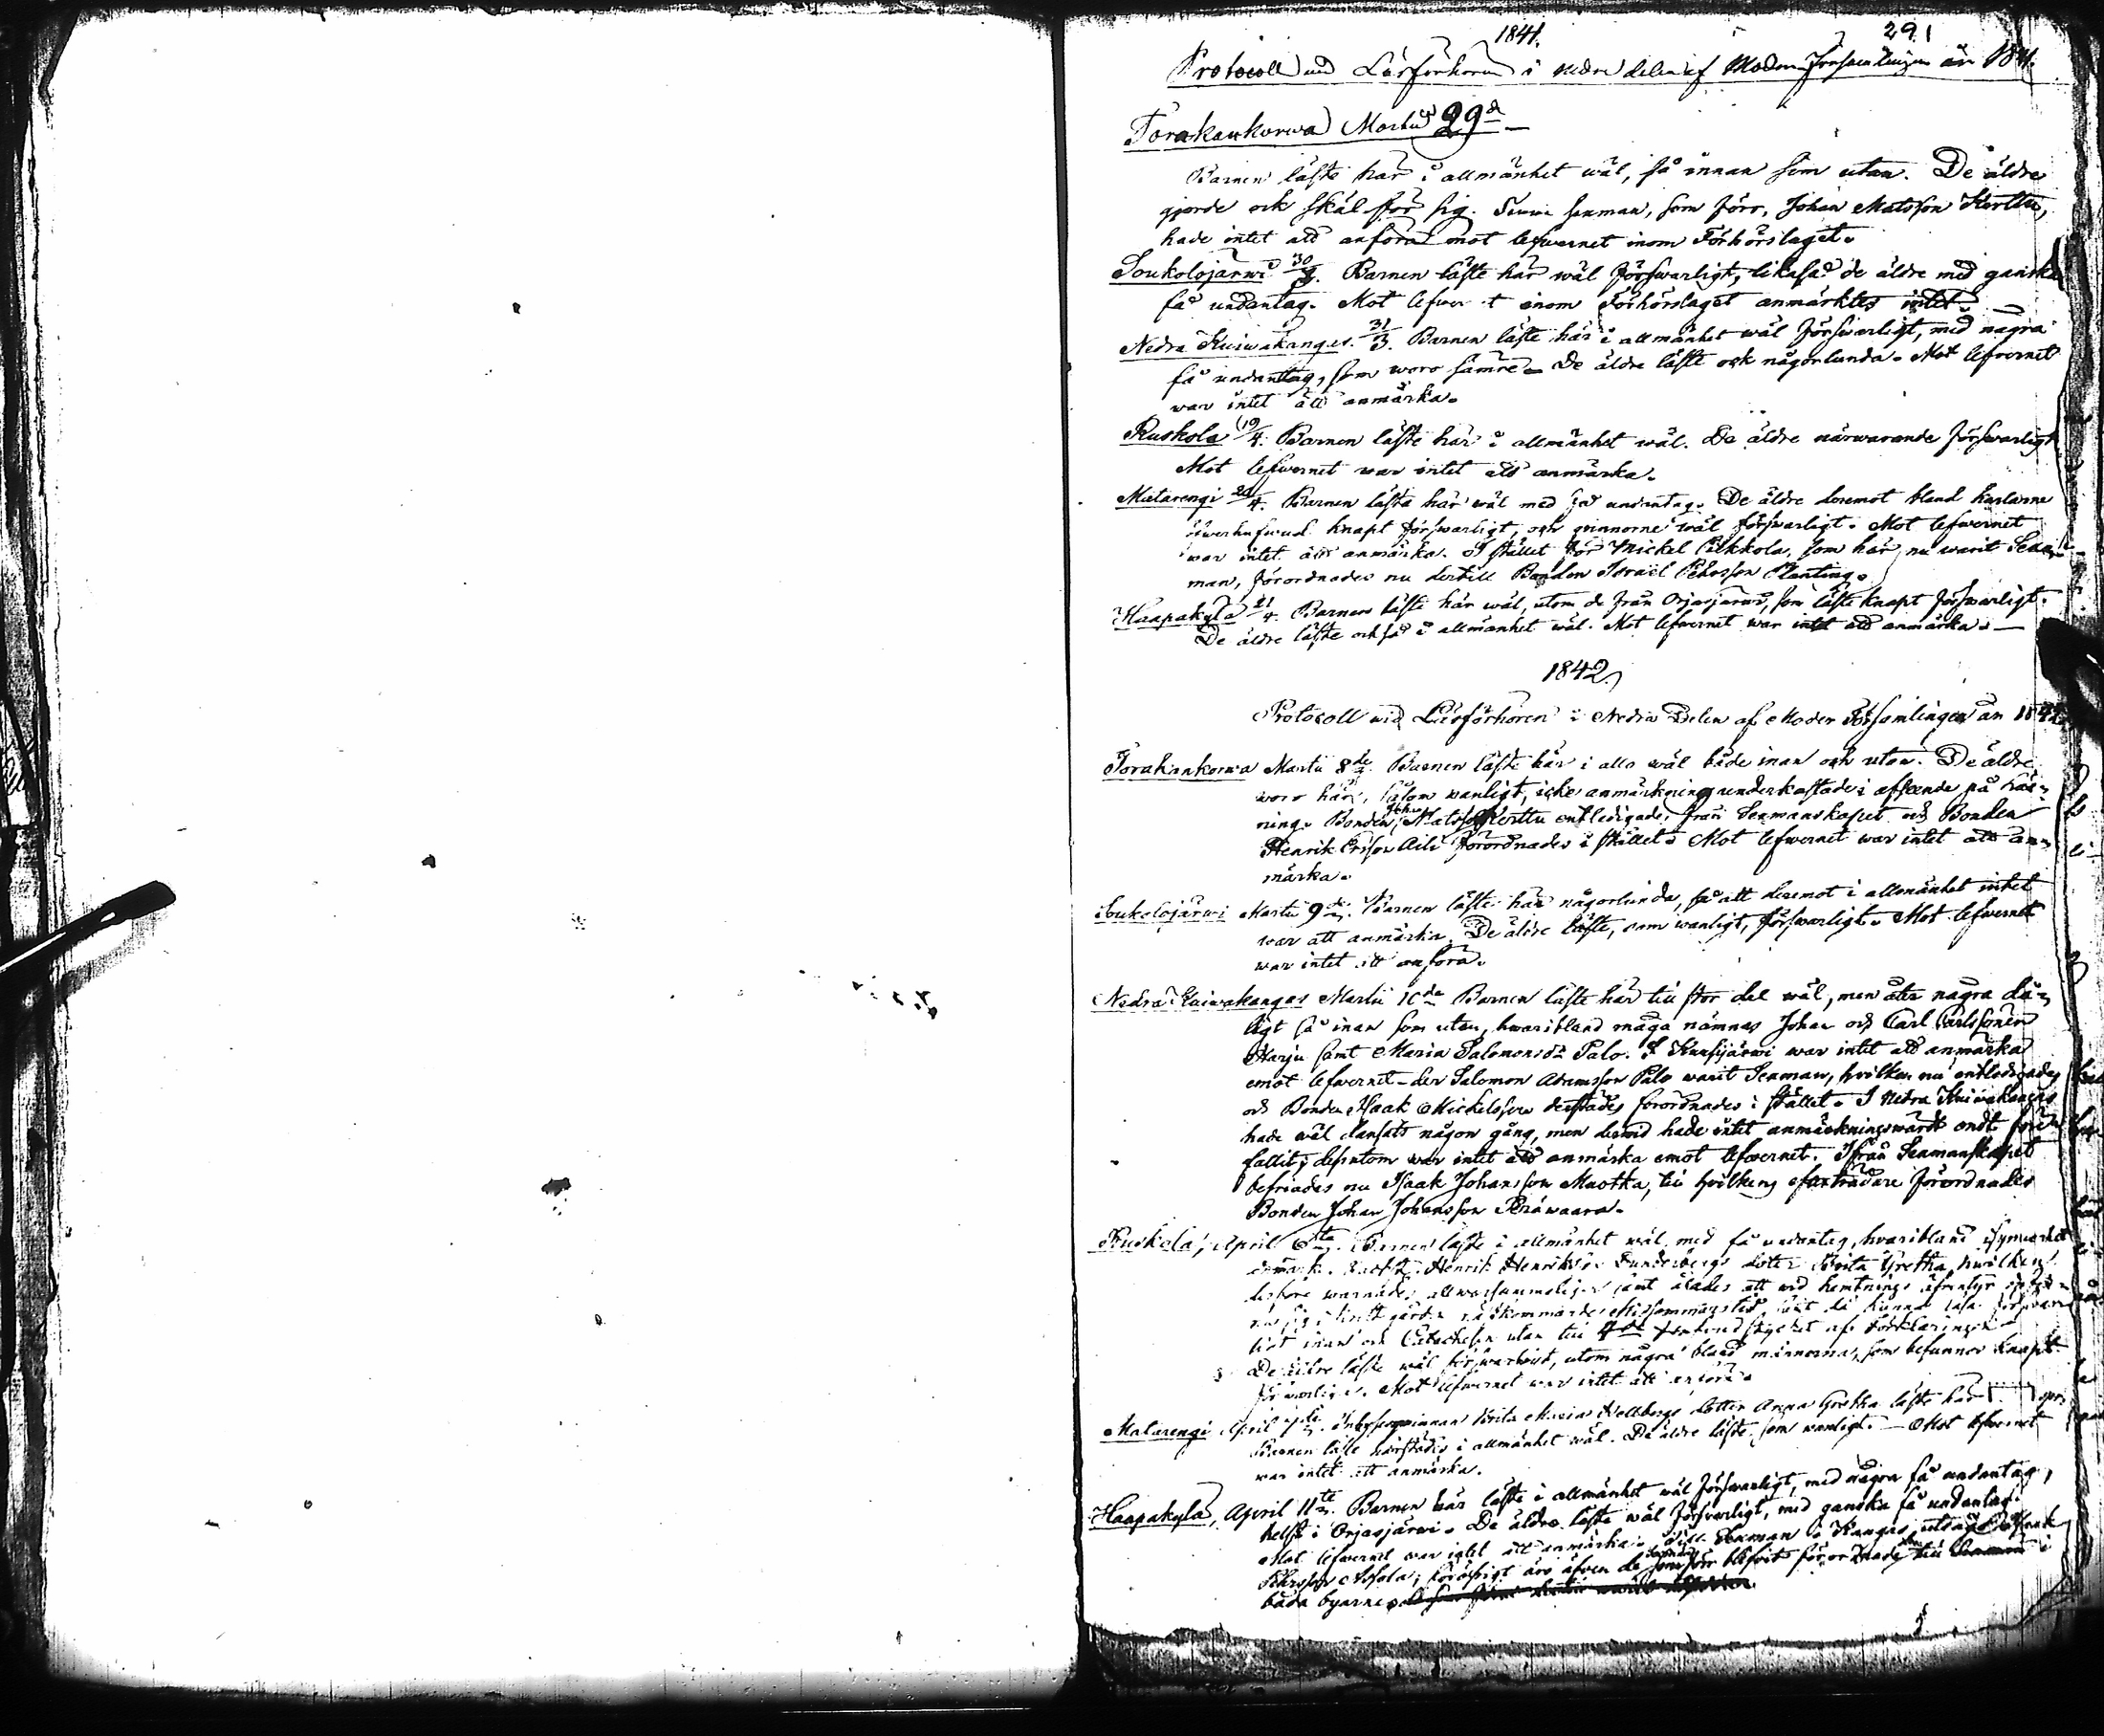 1841.
291
Protocoll wid Läsförhören i nedre delen af Moder Församlingen år 1841.
Torakankorwa Martii 29de
Barnen läste här i allmänhet wäl, så innan som utan. De äldre
gjorde ock skäl för sig. Sexman, som förr, Johan Matsson Kerttu,
hade intet att anföra mot lefwernet inom Förhörslaget.
Soukolojärwi 30/3. Barnen läste här wäl förswarligt, likaså de äldre med ganska
få undantag. Mot lefwer t inom Förhörslaget anmärktes intet.
Nedra Kuiwakangas. 31/3. Barnen läste här i allmänhet wäl försvarligt, med några
få undantag, som woro sämre. De äldre läste ock någorlunda. Mot lefwernet
war intet att anmärka.
Ruskola 19/4. Barnen läste här i allmänhet wäl. De äldre närwarande försvarligt
Mot lefwernet war intet att anmärka.
Matarengi 20/4. Barnen läste här wäl med få undantag. De äldre deremot bland karlarne
öfwerhufwud knapt försvarligt, och qvinnorne wäl försvarligt. Mot lefwernet
war intet att anmärka. I stället för Mickel Pikkola, som här nu warit Sex-
man, förordnades nu dertill Bonden Israel Pehrsson Planting.
Haapakylä 21/4. Barnen läste här wäl, utom de från Orjasjärwi, som läste knapt försvarligt.
De äldre läste också i allmänhet wäl. Mot lefwernet war intet att anmärka.
1842
Protocoll wid Läsförhören i Nedra Delen af Moder Församlingen år 1842
Torakankorwa Martii 8de. Barnen läste här i allo wäl både inan och utan. De äldre
woro här, såsom wanligt, icke anmärkning underkastade i afseende på Läs-
ning. Bonden Johan Matsson Kerttu entledigades från Sexmanskapet och Bonden
Henrik Ersson Aili förordnades i stället. Mot lefwernet war intet att an-
märka.
Soukolojärwi Martii 9de. Barnen läste här någorlunda, så att deremot i allmänhet intet
war att anmärka. De äldre läste, som wanligt, försvarligt. Mot lefwernet
war intet att anföra.
Nedra Kuiwakangas Martii 10de Barnen läste här till stor del wäl, men åter några då-
ligt så inan som utan, hwaribland måga nämnas Johan och Carl Carlssöner
Harju samt Maria Salomonsdr Palo. I Kuusijärwi war intet att anmärka
emot lefwernet der Salomon Adamsson Palo warit Sexman, hvilken nu entledigades
och Bonden Isaak Mickelsson derstädes förordnades i stället. I Nedra Kuiwakangas
hade wäl dansats någon gång, men derwid hade intet anmärkningswärdt ondt före-
fallit; dessutom war intet att anmärka emot lefwernet. Ifrån Sexmanskapet
befriades nu Isaak Johansson Muotka, till hvilkens efterträdare förordnades
Bonden Johan Johansson Peräwaara.
Ruskola, April 6te. Barnen läste i allmänhet wäl med få undantag, hvaribland
Henrik Henriksson Dunderbergs dotter Brita Gretha, hwilken
warnades samt ålades att wid hemtnings äfventyr
nästkommande Midsommarstid,
inan och Catechesen utan till 4de
De äldre läste wäl försvarligt, utom några bland männerna, som befunnos knapt
försvarliga. Mot lefwernet war intet att anföra.
Matarengi April 7de. Brita Maria Wellbergs dotter Anna Gretha läste här
Barnen läste härstädes i allmänhet wäl. De äldre läste som wanligt. Mot lefwernet
war intet att anmärka.
Haapakylä, April 11te. Barnen här läste i allmänhet wäl försvarligt, med några få undantag,
helst i Orjasjärwi. De äldre läste wäl försvarligt, med ganska få undantag.
Mot lefwernet war intet att anmärka. Till Sexman i Kangas utsågs Isaak
Pehrsson; för öfrigt äro äfven de som förr blifvit förordnade till Sexmän i
båda byarne.